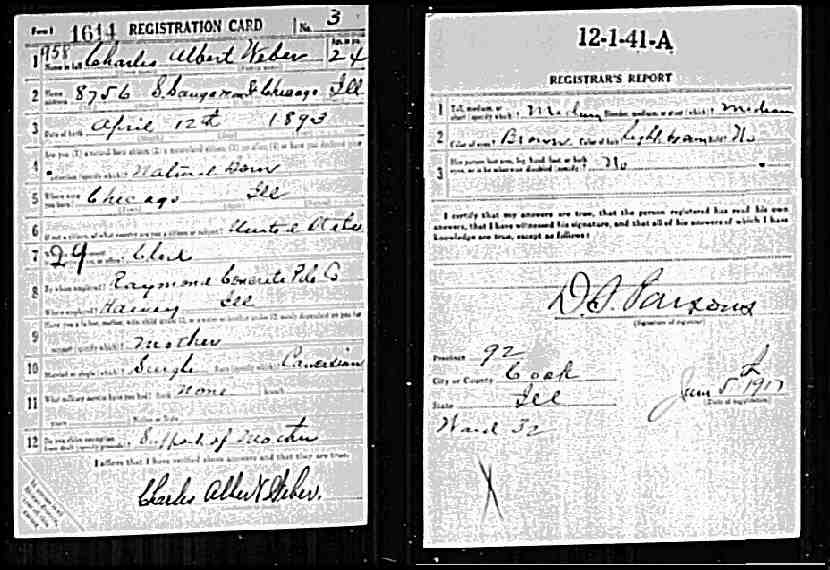 Form 1 1614 REGISTRATION CARD No. 3
758
1 Name in full Charles Albert Weber Age, in yrs. 24
2 Home address 8756 S. Sangamon St Chicago Ill
3 Date of birth April 12th 1893
4 Are you (1) a natural born citizen, (2) a naturalized citizen, (3) an alien, (4) or have you declared your
intention (specify which)? Natural Born
5 Where were you born? Chicago Ill
6 If not a citizen, of what country are you a citizen or subject? United States
7 29 Clerk
8 By whom employed? Raymond Concrete Pile Co
Where employed? Harvey Ill
9 Have you a father, mother, wife, child under 12, or a sister or brother under 12, solely dependent on you for
support (specify which)? Mother
10 Married or single (which)? Single Race (specify which)? Caucasian
11 What military service have you had? Rank None branch
years Nation or State
12 Do you claim exemption from draft (specify grounds)? Support of Mother
I affirm that I have verified above answers and that they are true.
Charles Albert Weber.
12-1-41-A
REGISTRAR'S REPORT
1 Tall, medium, or short (specify which)? Medium Slender, medium, or stout (which)? Medium
2 Color of eyes? Brown Color of hair? Light brown Bald? No
3 Has person lost arm, leg, hand, foot, or both eyes, or is he otherwise disabled (specify)? No
I certify that my answers are true, that the person registered has read his own
answers, that I have witnessed his signature, and that all of his answers of which I have
knowledge are true, except as follows:
D. S. Parsons
(Signature of registrar)
Precinct 92
City or County Cook
State Ill
June 5th 1917
(Date of registration)
Ward 32
X